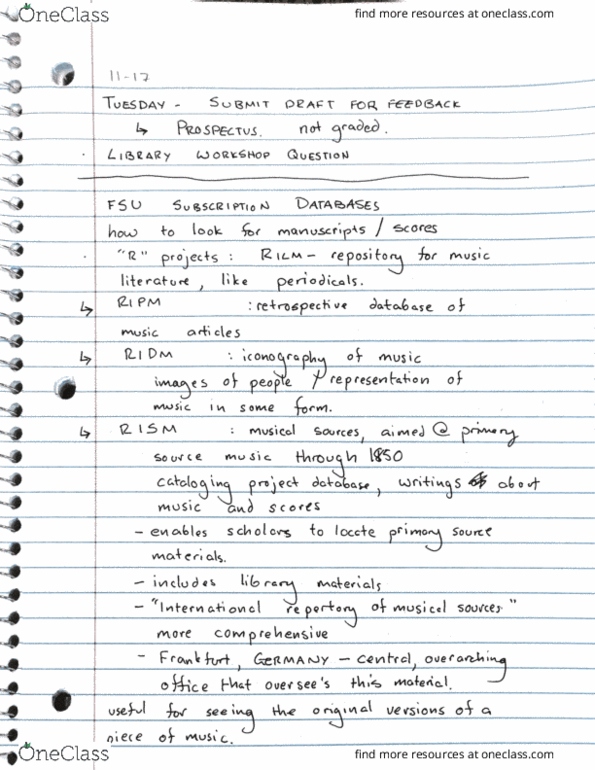 OneClass
find more resources at oneclass.com
11-17
TUESDAY - SUBMIT DRAFT FOR FEEDBACK
↳ PROSPECTUS. not graded.
· LIBRARY WORKSHOP QUESTION
FSU SUBSCRIPTION DATABASES
how to look for manuscripts / scores
· "R" projects : RILM - repository for music
literature, like periodicals.
↳ RIPM : retrospective database of
music articles
↳ RIDM : iconography of music
images of people / representation of
music in some form.
↳ RISM : musical sources, aimed @ primary
source music through 1850
cataloging project database, writings about
music and scores
- enables scholars to locate primary source
materials.
- includes library materials
- "International repertory of musical sources."
more comprehensive
- Frankfurt, GERMANY - central, overarching
office that oversee's this material.
useful for seeing the original versions of a
piece of music.
OneClass
find more resources at oneclass.com